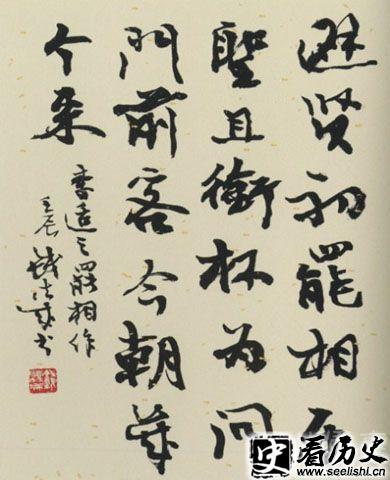 避贤初罷相乐
聖且衔杯为问
門前客今朝幾
个来
李适之罷相作
壬辰 钱法成书
史 看历史
www.seelishi.com